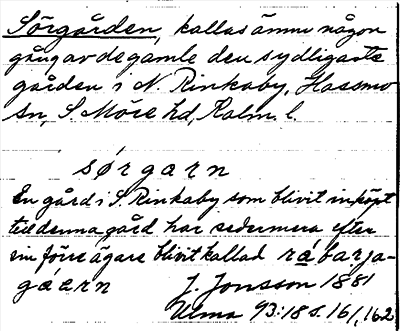 Sörgården, kallas ännu någon
gång av de gamle den sydligaste
gården i N. Rinkaby, Hossmo
sn, S. Möre hd, Kalm. l.
sørgarn
En gård i S. Rinkaby som blivit inköpt
till denna gård har sedermera efter
sin förre ägare blivit kallad rábarja-
gáern
J. Jonsson 1881
Ulma 93:18 s. 161, 162